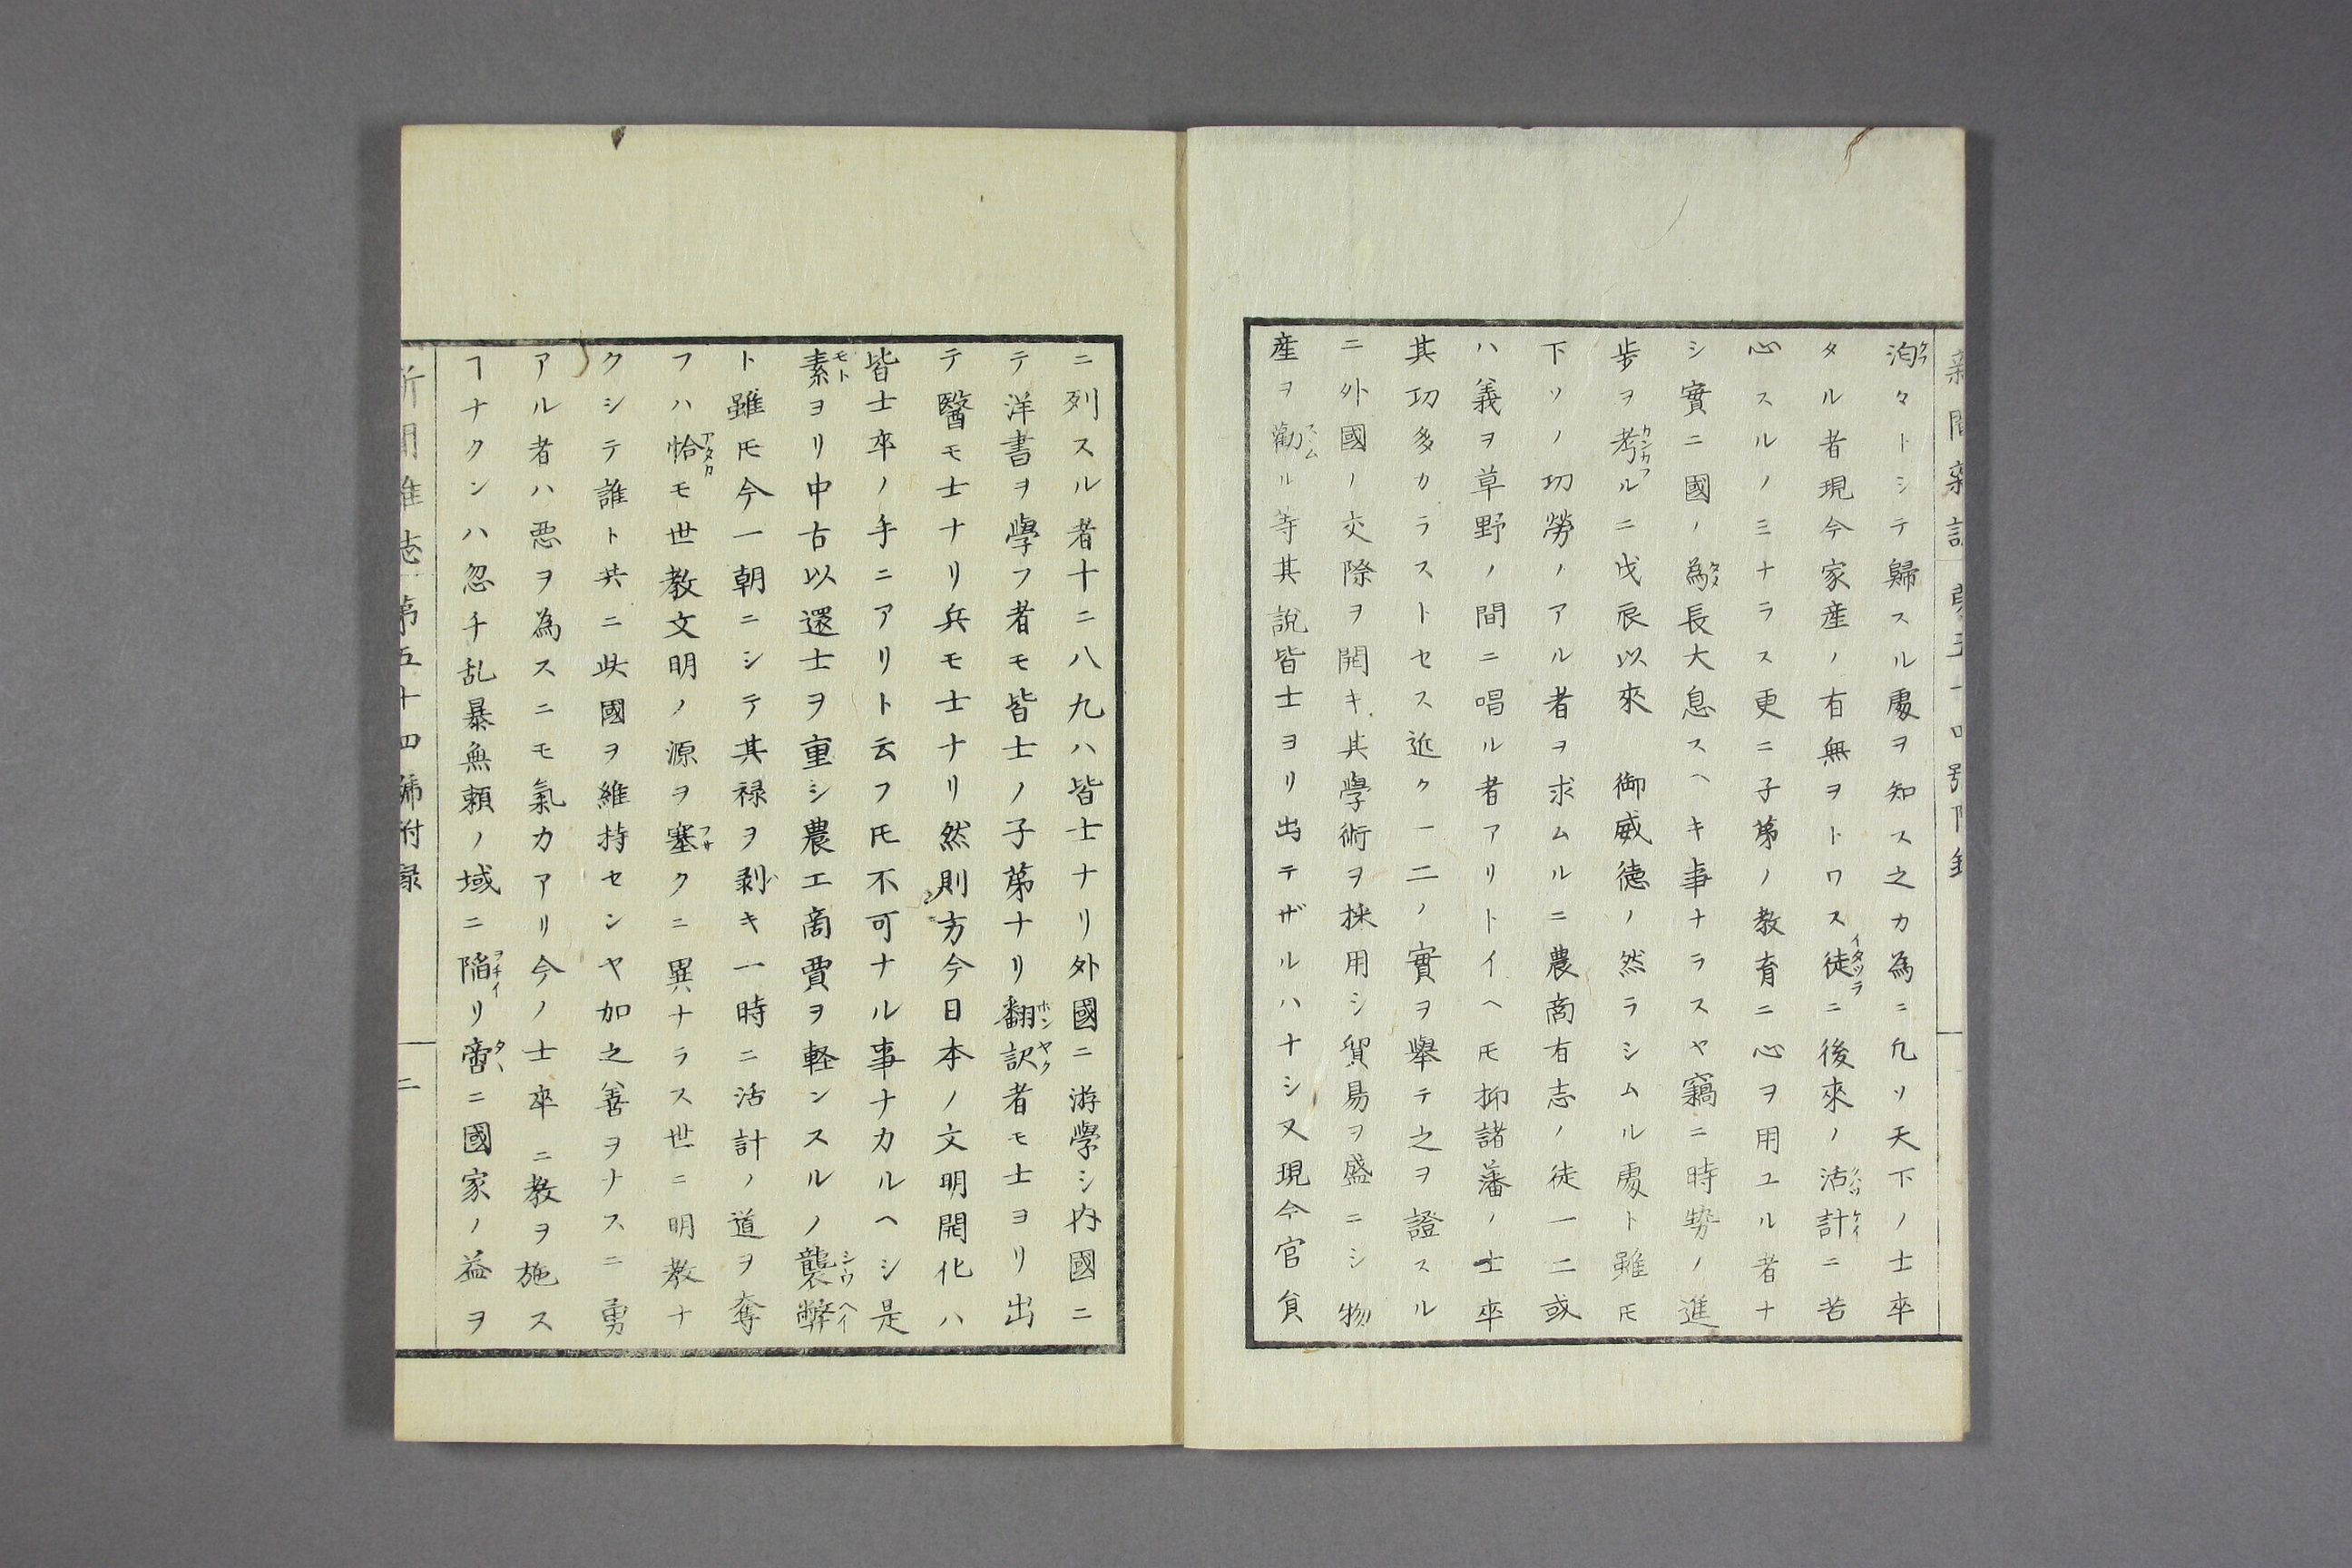 泊々トシテ歸スル處ヲ知ス之カ為ニ凢ソ天下ノ士卒
タル者現今家産ノ有無ヲトワス徒ニ後來ノ活計ニ苦
心スルノミナラス更ニ子苐ノ教育ニ心ヲ用ユル者ナ
シ實ニ國ノ為長大息スヘキ事ナラスヤ竊ニ時勢ノ進
歩ヲ考ルニ戊辰以來 御威徳ノ然ラシムル處ト雖モ
下ソノ功勞ノアル者ヲ求ムルニ農商有志ノ徒一二或
ハ義ヲ草野ノ間ニ唱ル者アリトイヘ𪜈抑諸藩ノ士卒
其功多カラストセス近ク一二ノ實ヲ舉テ之ヲ證スル
ニ外國ノ交際ヲ開キ其學術ヲ採用シ貿易ヲ盛ニシ物
産ヲ勸ル等其説皆士ヨリ出テザルハナシ又現今官負
ニ列スル者十ニ八九ハ皆士ナリ外國ニ游學シ内國ニ
テ洋書ヲ學フ者モ皆士ノ子苐ナリ翻訳者モ士ヨリ出
テ醫モ士ナリ兵モ士ナリ然則方今日本ノ文明開化ハ
皆士卒ノ手ニアリト云フ𪜈不可ナル事ナカルヘシ是
素ヨリ中古以還士ヲ重シ農工商賈ヲ軽ンスルノ襲弊
ト雖𪜈今一朝ニシテ其禄ヲ剥キ一時ニ活計ノ道ヲ奪
フハ恰モ世教文明ノ源ヲ塞クニ異ナラス世ニ明教ナ
クシテ誰ト共ニ此國ヲ維持センヤ加之善ヲナスニ勇
アル者ハ悪ヲ為スニモ氣力アリ今ノ士卒ニ教ヲ施ス
ヿナクンハ忽チ乱暴無頼ノ域ニ陥リ啻ニ國家ノ益ヲ
新聞雜志 第五十四號附録
二